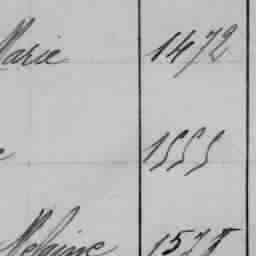 Marie 1472
e 1555
Melaine 1575